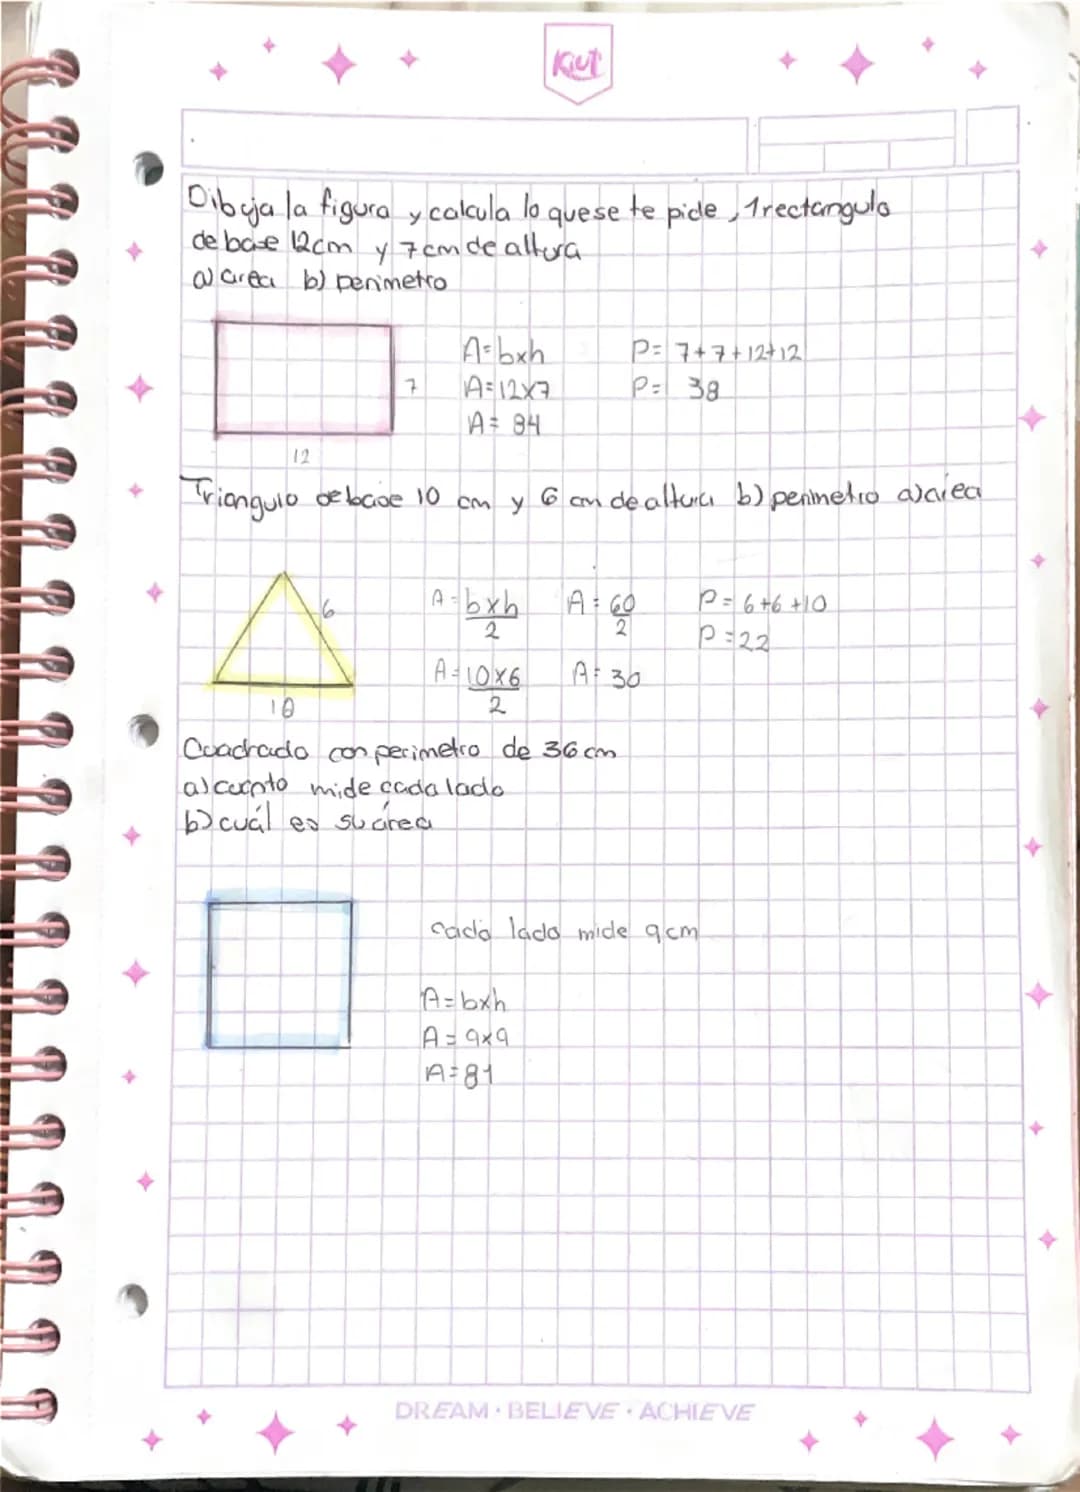 Kiut
Dibuja la figura y calcula lo que se te pide, 1 rectangulo
de base 12cm y 7cm de altura
a) area b) perimetro
A=bxh P= 7+7+12+12
7 A=12x7 P= 38
A= 84
12
Triangulo de base 10 cm y 6 cm de altura b) perimetro a) area
6 A=bxh/2 A=60/2 P=6+6+10
P=22
A=10x6/2 A=30
10
Cuadrado con perimetro de 36cm
a) cuanto mide cada lado
b) cuál es su área
cada lado mide 9cm
A=bxh
A=9x9
A=81
DREAM · BELIEVE · ACHIEVE